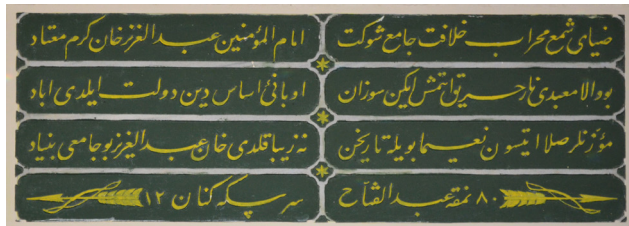 ضیای شمع محراب خلافت جامع شوکت امام المؤمنین عبد العزیز خان کرم معتاد
بو والا معبدی نار حریق اتمش ایکن سوزان او بانئ اساس دین دولت ایلدی اباد
مؤذنلر صلا ایتسون نعیما بویله تاریخن نه زیبا قلدی خان عبد العزیز بو جامعی بنیاد
۸۰ نمقه عبد الفتاح سر سکه کنان ۱۲